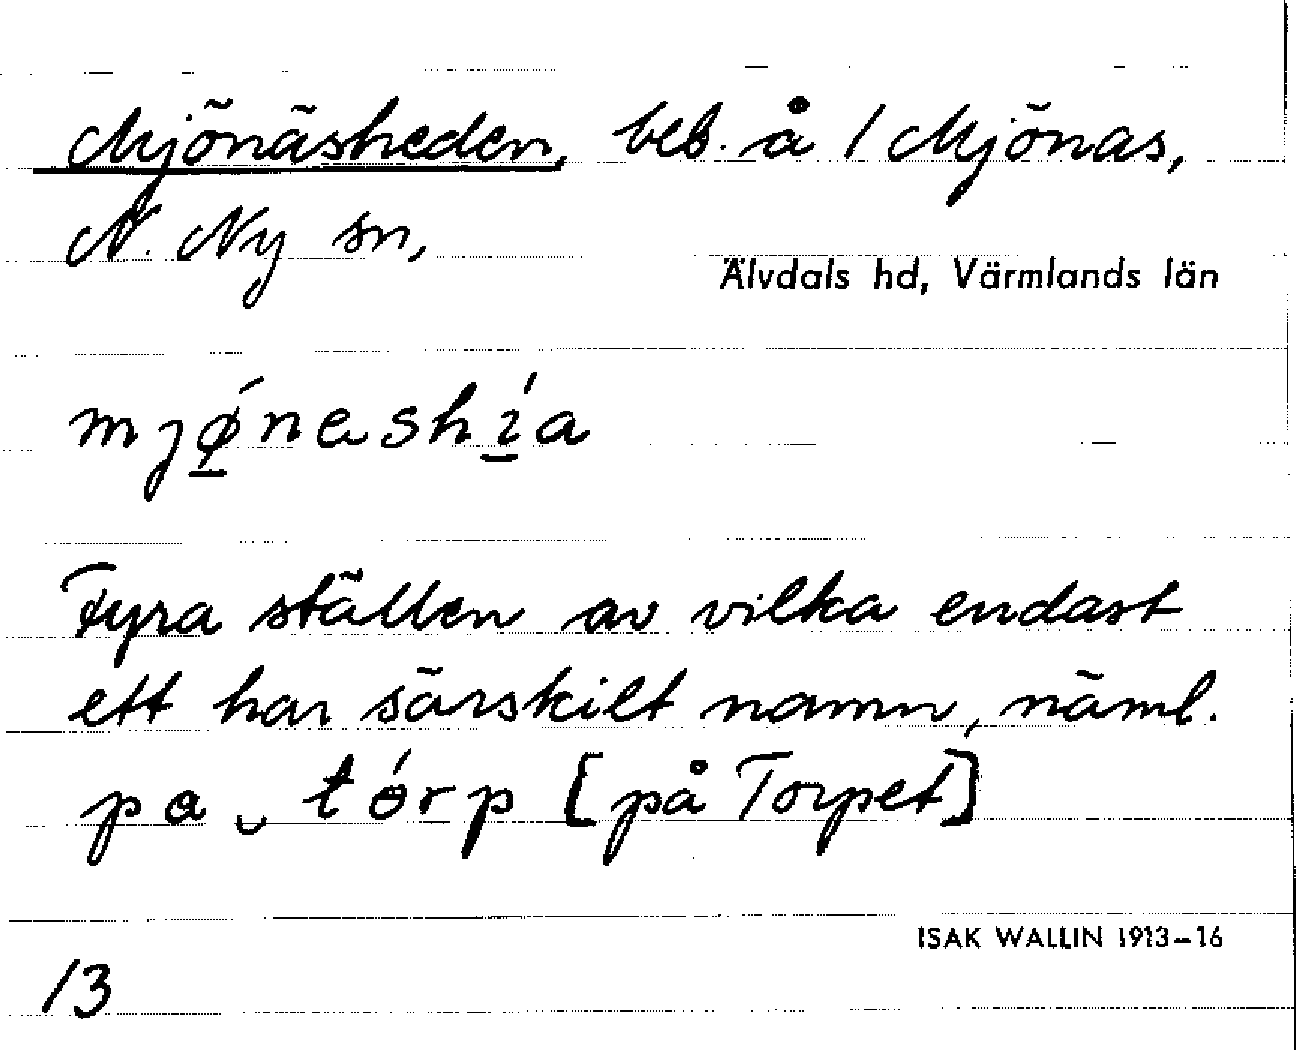 Mjönäsheden, beb. å 1 Mjönas,
N. Ny sn,
Älvdals hd, Värmlands län
mjǿnashía
Fyra ställen av vilka endast
ett har särskilt namn, näml.
pa ‿ tórp [på Torpet]
ISAK WALLIN 1913–16
13